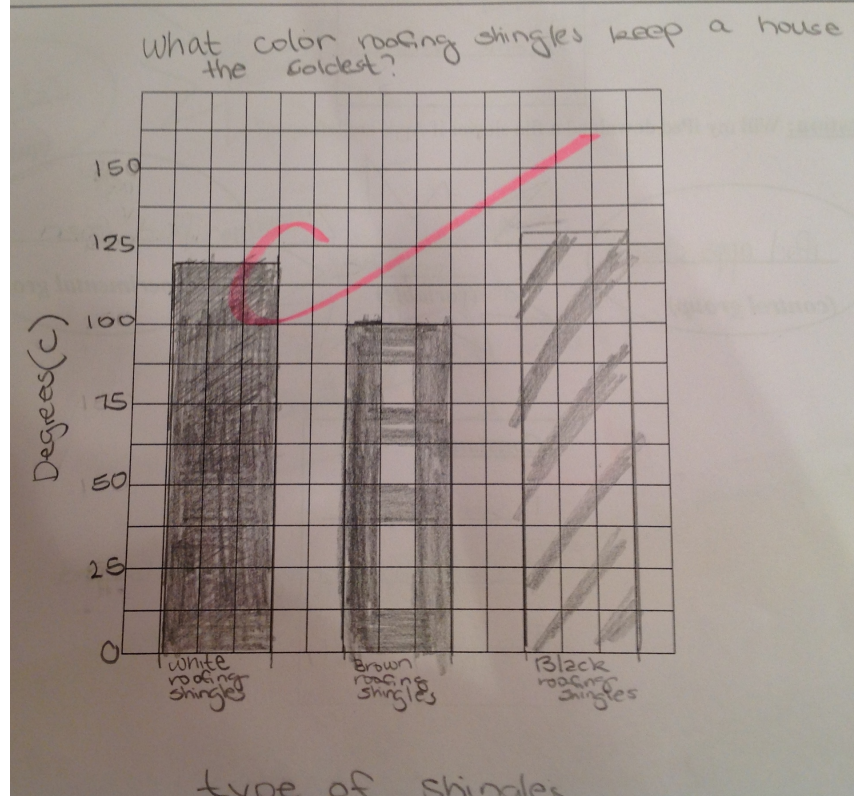 What color roofing shingles keep a house
the coldest?
150
125
100
75
50
25
0
Degrees(C)
White
roofing
shingles
Brown
roofing
shingles
Black
roofing
shingles
type of shingles